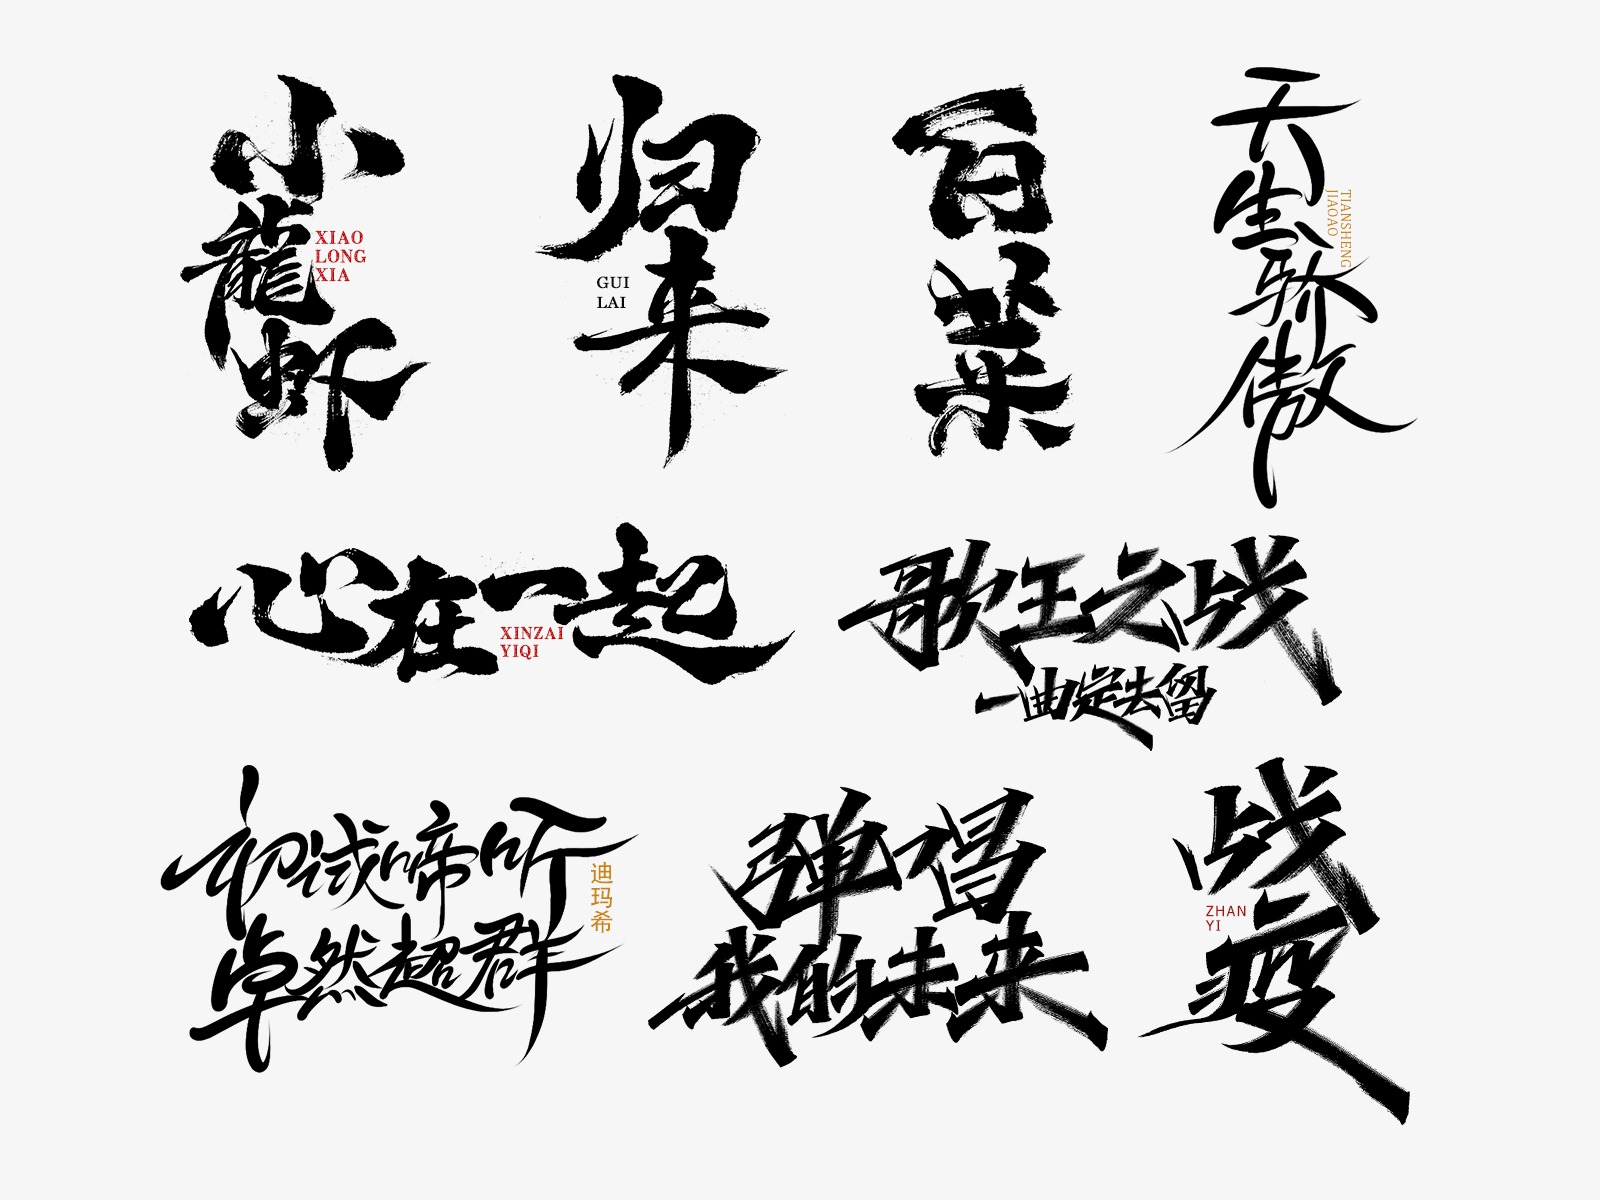 小龍虾
XIAO
LONG
XIA
归来
GUI
LAI
百菜
天生骄傲
TIANSHENG
JIAOAO
心在一起
XINZAI
YIQI
歌王之战
一曲定去留
初试啼听
迪玛希
卓然超群
弹唱
我的未来
战疫
ZHAN
YI